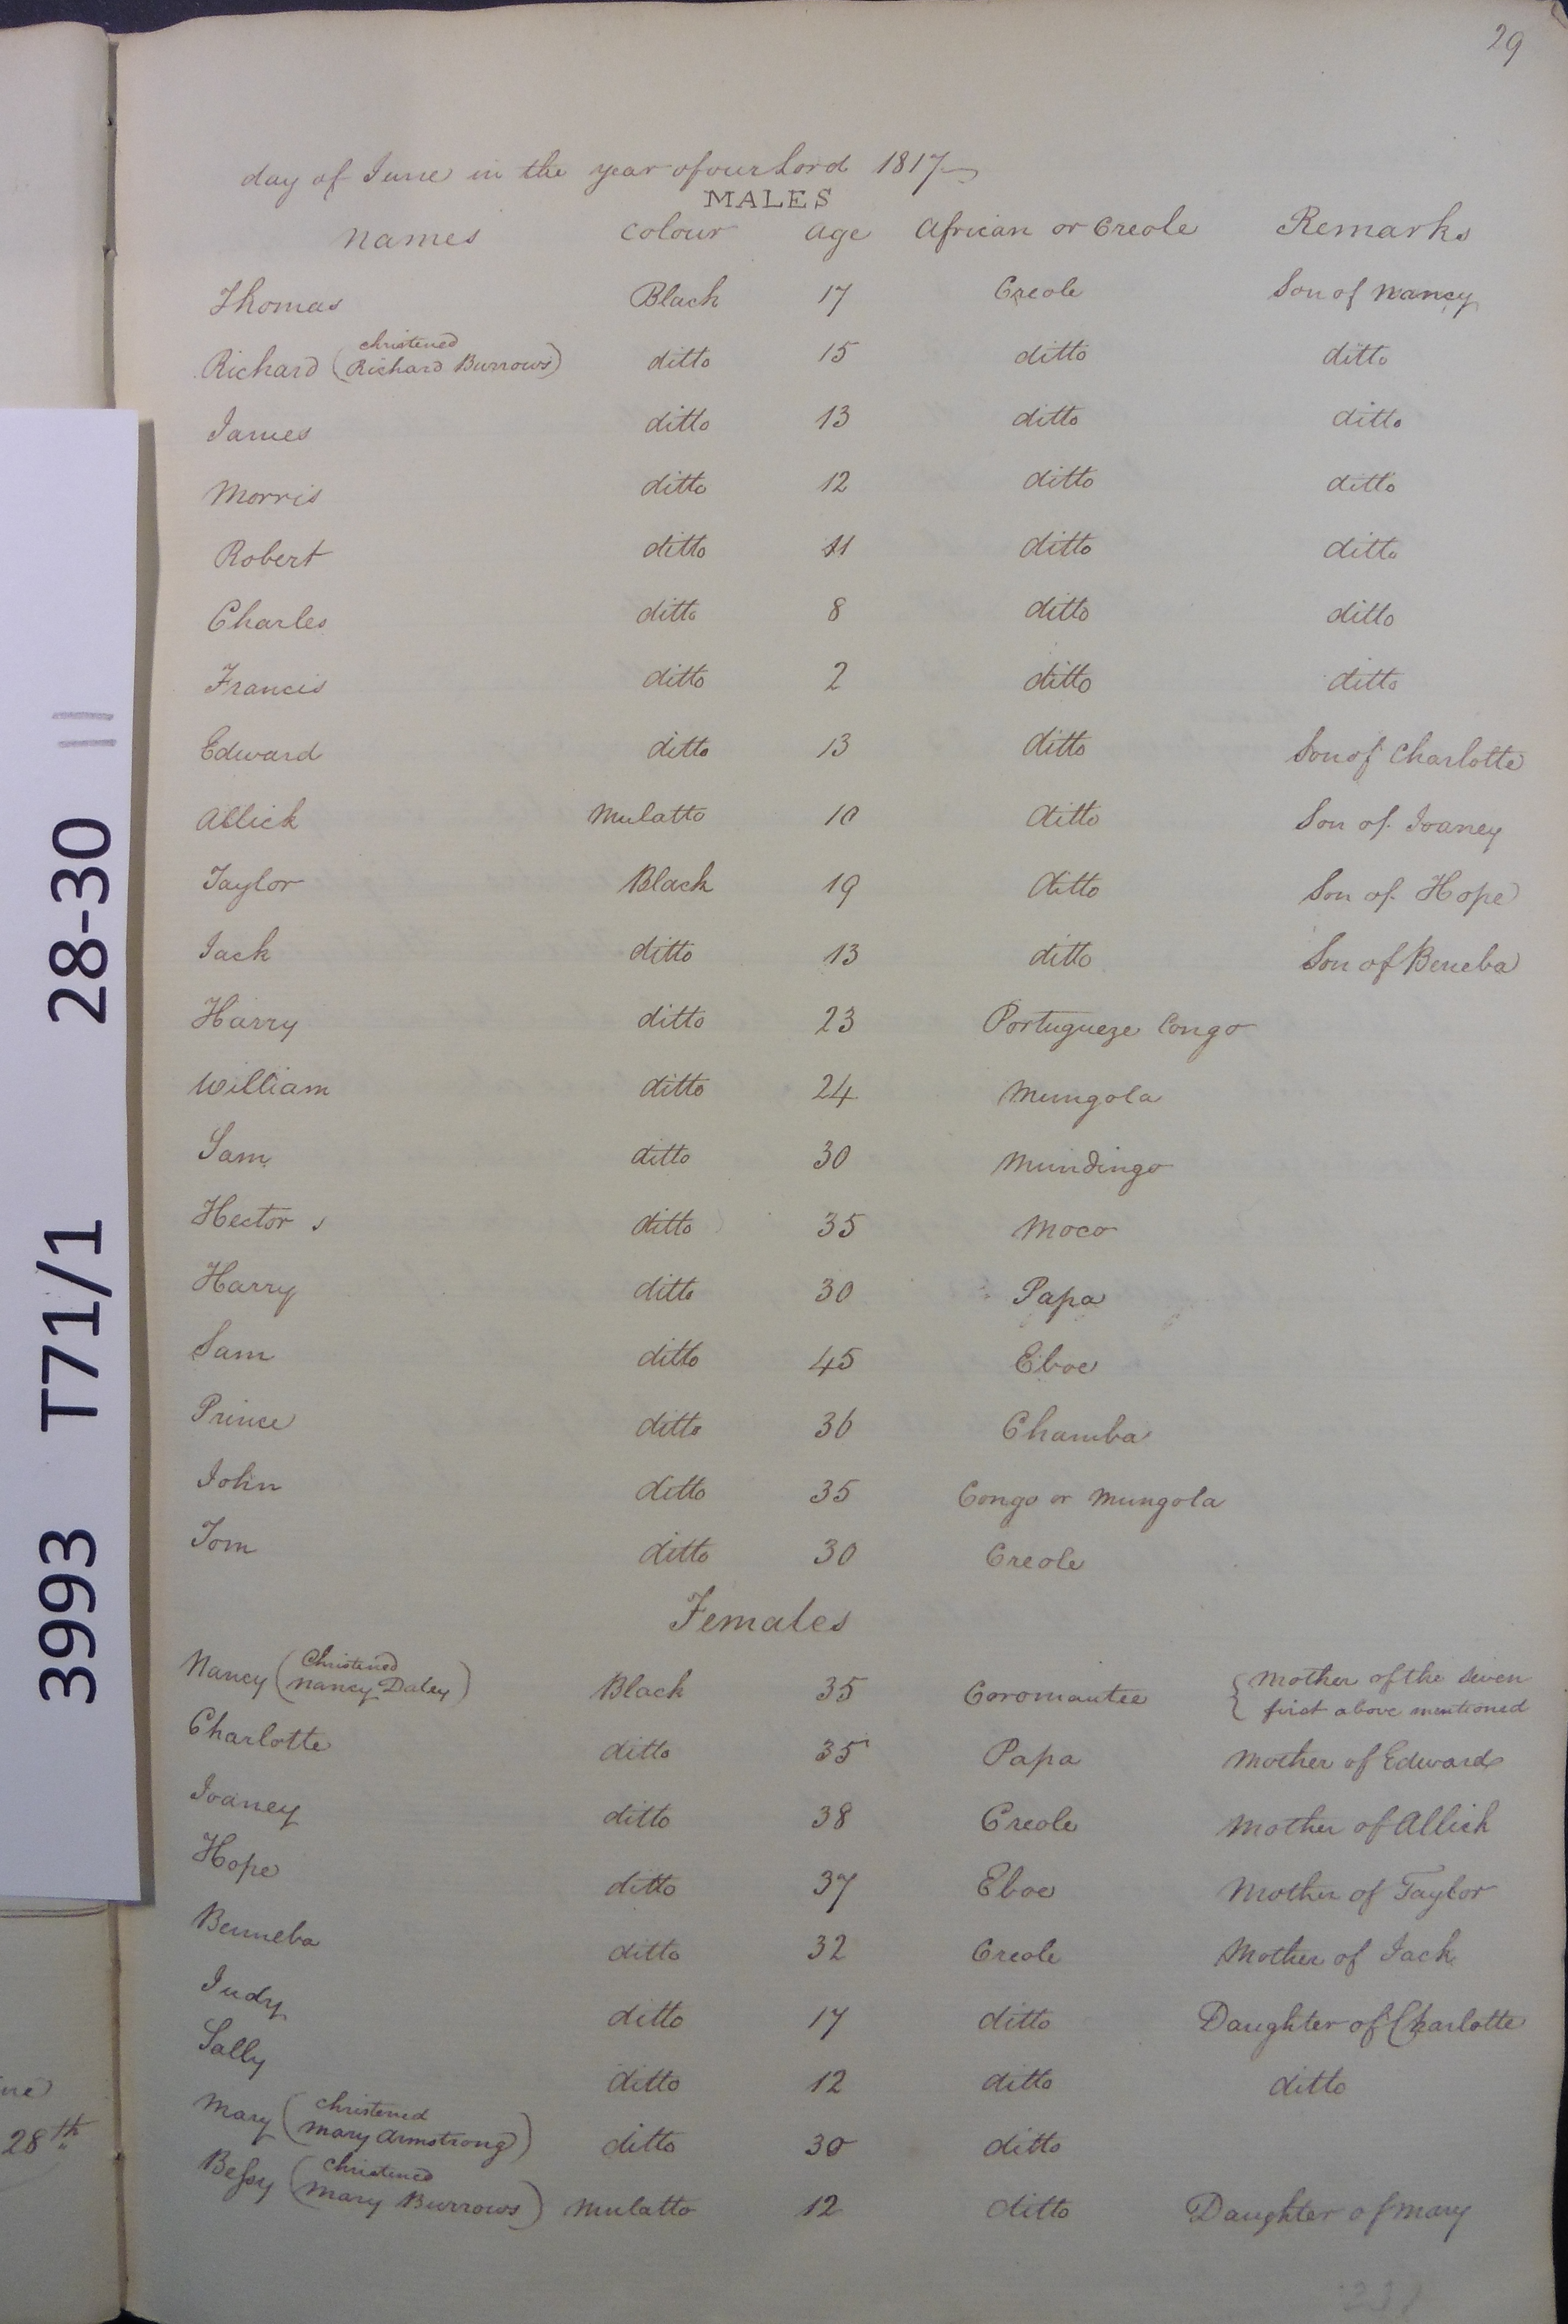 29
day of June in the year of our Lord 1817
MALES
Names Colour Age African or Creole Remarks
Thomas Black 17 Creole Son of Nancy
Richard (christened Richard Burrows) ditto 15 ditto ditto
James ditto 13 ditto ditto
Morris ditto 12 ditto ditto
Robert ditto 11 ditto ditto
Charles ditto 8 ditto ditto
Francis ditto 2 ditto ditto
Edward ditto 13 ditto Son of Charlotte
Allick Mulatto 10 ditto Son of Joaney
Taylor Black 19 ditto Son of Hope
Jack ditto 13 ditto Son of Beneba
Harry ditto 23 Portugueze Congo
William ditto 24 Mungola
Sam ditto 30 Mundingo
Hector ditto 35 Moco
Harry ditto 30 Papa
Sam ditto 45 Eboe
Prince ditto 36 Chamba
John ditto 35 Congo or Mungola
Tom ditto 30 Creole
Females
Nancy (Christened Nancy Daley) Black 35 Coromantee { Mother of the seven first above mentioned
Charlotte ditto 35 Papa Mother of Edward
Joaney ditto 38 Creole Mother of Allick
Hope ditto 37 Eboe Mother of Taylor
Benneba ditto 32 Creole Mother of Jack
Judy ditto 17 ditto Daughter of Charlotte
Sally ditto 12 ditto ditto
Mary (christened Mary Armstrong) ditto 30 ditto
Bessy (christened Mary Burrows) Mulatto 12 ditto Daughter of Mary
28th
3993 T71/1 28-30 11